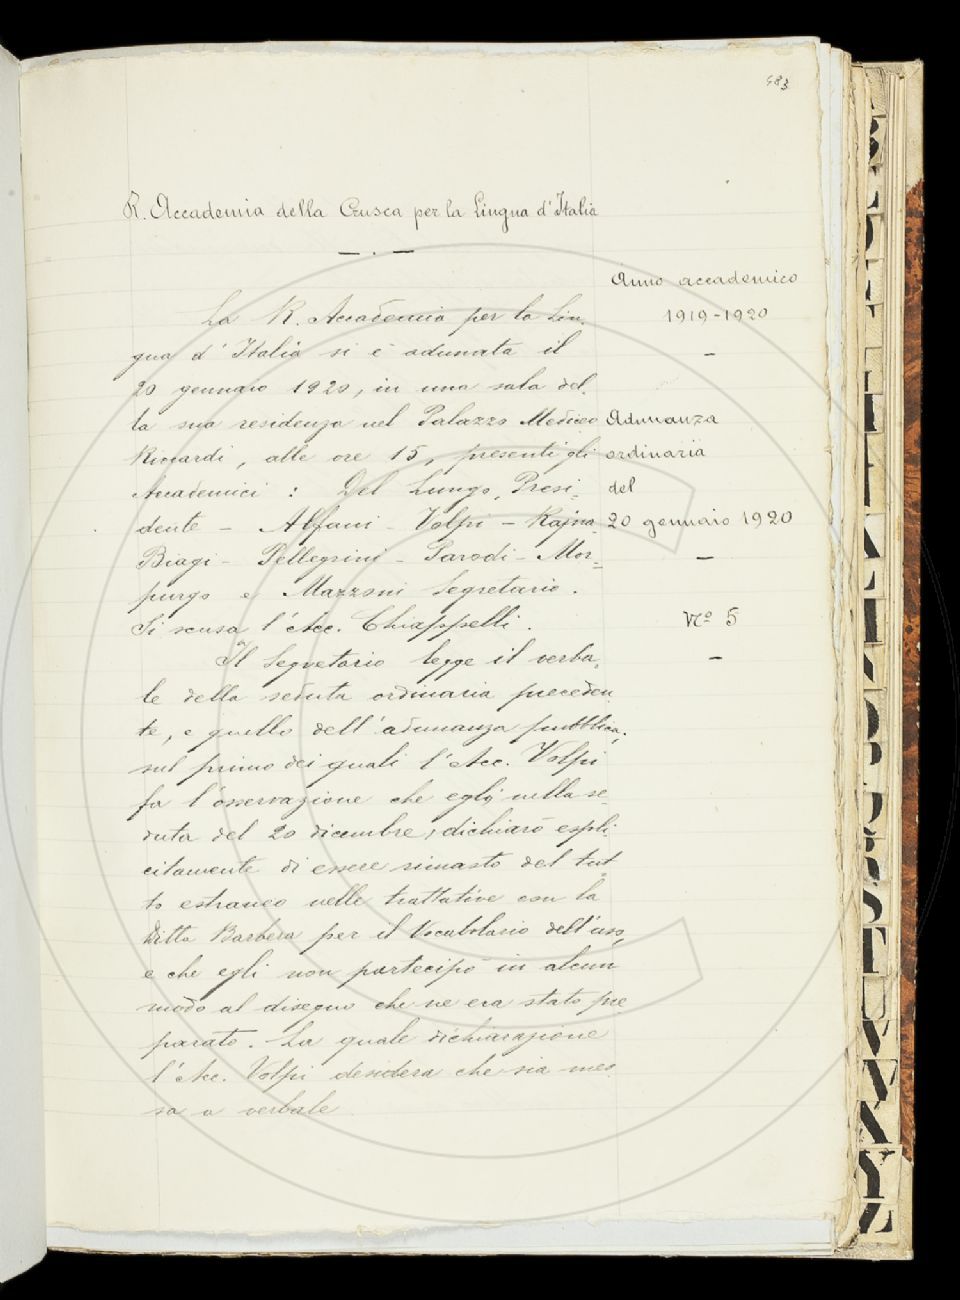 483
R. Accademia della Crusca per la Lingua d'Italia
Anno accademico
1919-1920
Adunanza
ordinaria
del
20 gennaio 1920
Nº 5
La R. Accademia per la Lin-
gua d'Italia si è adunata il
20 gennaio 1920, in una sala del-
la sua residenza nel Palazzo Mediceo
Riccardi, alle ore 15, presenti gli
Accademici: Del Lungo, Presi-
dente - Alfani - Volpi - Rajna
Biagi - Pellegrini - Parodi - Mor=
purgo e Mazzoni Segretario.
Si scusa l'Acc. Chiappelli.
Il Segretario legge il verba-
le della seduta ordinaria preceden
te, e quello dell'adunanza pubblica;
sul primo dei quali l'Acc. Volpi
fa l'osservazione che egli nella se-
duta del 20 dicembre, dichiarò espli-
citamente di essere rimasto del tut-
to estraneo nelle trattative con la
Ditta Barbèra per il Vocabolario dell'uso,
e che egli non partecipò in alcun
modo al disegno che ne era stato pre
parato. La quale dichiarazione
l'Acc. Volpi desidera che sia mes
sa a verbale
A
B
C
D
E
F
G
H
I
K
L
M
N
O
P
Q
R
S
T
U
V
X
Y
Z